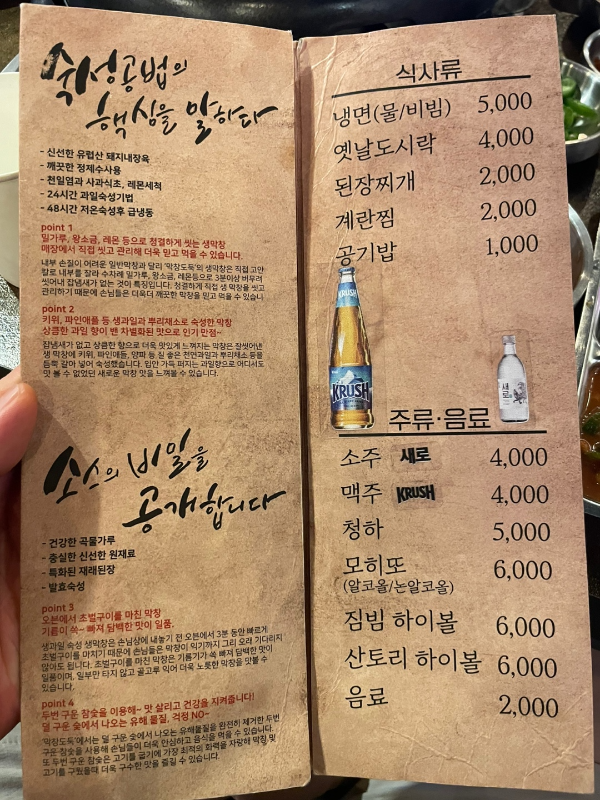 숙성공법의
핵심을 말하다
- 신선한 유럽산 돼지내장육
- 깨끗한 정제수사용
- 천일염과 사과식초, 레몬세척
- 24시간 과일숙성기법
- 48시간 저온숙성후 급냉동
point 1
밀가루, 왕소금, 레몬 등으로 청결하게 씻는 생막창
매장에서 직접 씻고 관리해 더욱 믿고 먹을 수 있습니다.
내부 손질이 어려운 일반막창과 달리 '막창도둑'의 생막창은 직접 고안
칼로 내부를 잘라 수차례 밀가루, 왕소금, 레몬등으로 3분이상 버무려
씻어내 잡냄새가 없는 것이 특징입니다. 청결하게 직접 생 막창을 씻고
관리하기 때문에 손님들은 더욱더 깨끗한 막창을 믿고 먹을 수 있습니
point 2
키위, 파인애플 등 생과일과 뿌리채소로 숙성한 막창
상큼한 과일 향이 밴 차별화된 맛으로 인기 만점~
잡냄새가 없고 상큼한 향으로 더욱 맛있게 느껴지는 막창은 잘씻어낸
생 막창에 키위, 파인애플, 양파 등 질 좋은 천연과일과 뿌리채소 등을
듬뿍 갈아 넣어 숙성했습니다. 입안 가득 퍼지는 과일향으로 어디서도
맛 볼 수 없었던 새로운 막창 맛을 느껴볼 수 있습니다.
소스의 비밀을
공개합니다
- 건강한 곡물가루
- 충실한 신선한 원재료
- 특화된 재래된장
- 발효숙성
point 3
오븐에서 초벌구이를 마친 막창
기름이 쏙~ 빠져 담백한 맛이 일품.
생과일 숙성 생막창은 손님상에 내놓기 전 오븐에서 3분 동안 빠르게
초벌구이를 마치기 때문에 손님들은 막창이 익기까지 그리 오래 기다리지
않아도 됩니다. 초벌구이를 마친 막창은 기름기가 쏙 빠져 담백한 맛이
일품이며, 일부만 타지 않고 골고루 익어 더욱 노릇한 막창을 맛볼 수
있습니다.
point 4
두번 구운 참숯을 이용해~ 맛 살리고 건강을 지켜줍니다!
덜 구운 숯에서 나오는 유해 물질, 걱정 NO~
'막창도둑'에서는 덜 구운 숯에서 나오는 유해물질을 완전히 제거한 두번
구운 참숯을 사용해 손님들이 더욱 안심하고 음식을 먹을 수 있습니다.
또 두번 구운 참숯은 고기를 굽기에 가장 최적의 화력을 자랑해 막창 및
고기를 구웠을때 더욱 구수한 맛을 즐길 수 있습니다.
식사류
냉면(물/비빔) 5,000
옛날도시락 4,000
된장찌개 2,000
계란찜 2,000
공기밥 1,000
KRUSH
KRUSH
새로
주류·음료
소주 새로 4,000
맥주 KRUSH 4,000
청하 5,000
모히또 6,000
(알코올/논알코올)
짐빔 하이볼 6,000
산토리 하이볼 6,000
음료 2,000